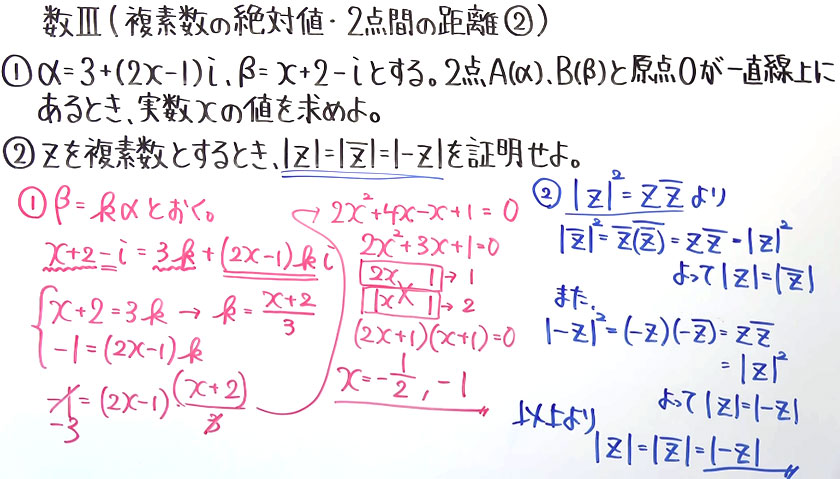 数Ⅲ(複素数の絶対値・2点間の距離②)
①α=3+(2x-1)i、β=x+2-iとする。2点A(α)、B(β)と原点Oが一直線上に
あるとき、実数xの値を求めよ。
②zを複素数とするとき、|z|=|z̅|=|-z|を証明せよ。
①β=kαとおく。
x+2-i=3k+(2x-1)ki
x+2=3k→k=(x+2)/3
-1=(2x-1)k
-1=(2x-1)(x+2)/3
-3
2x²+4x-x+1=0
2x²+3x+1=0
2x 1→1
1x 1→2
(2x+1)(x+1)=0
x=-1/2,-1
②|z|²=zz̅より
|z̅|²=z̅(z̅)̅=zz̅=|z|²
よって|z|=|z̅|
また、
|-z|²=(-z)(-z̅)=zz̅
=|z|²
よって|z|=|-z|
以上より
|z|=|z̅|=|-z|